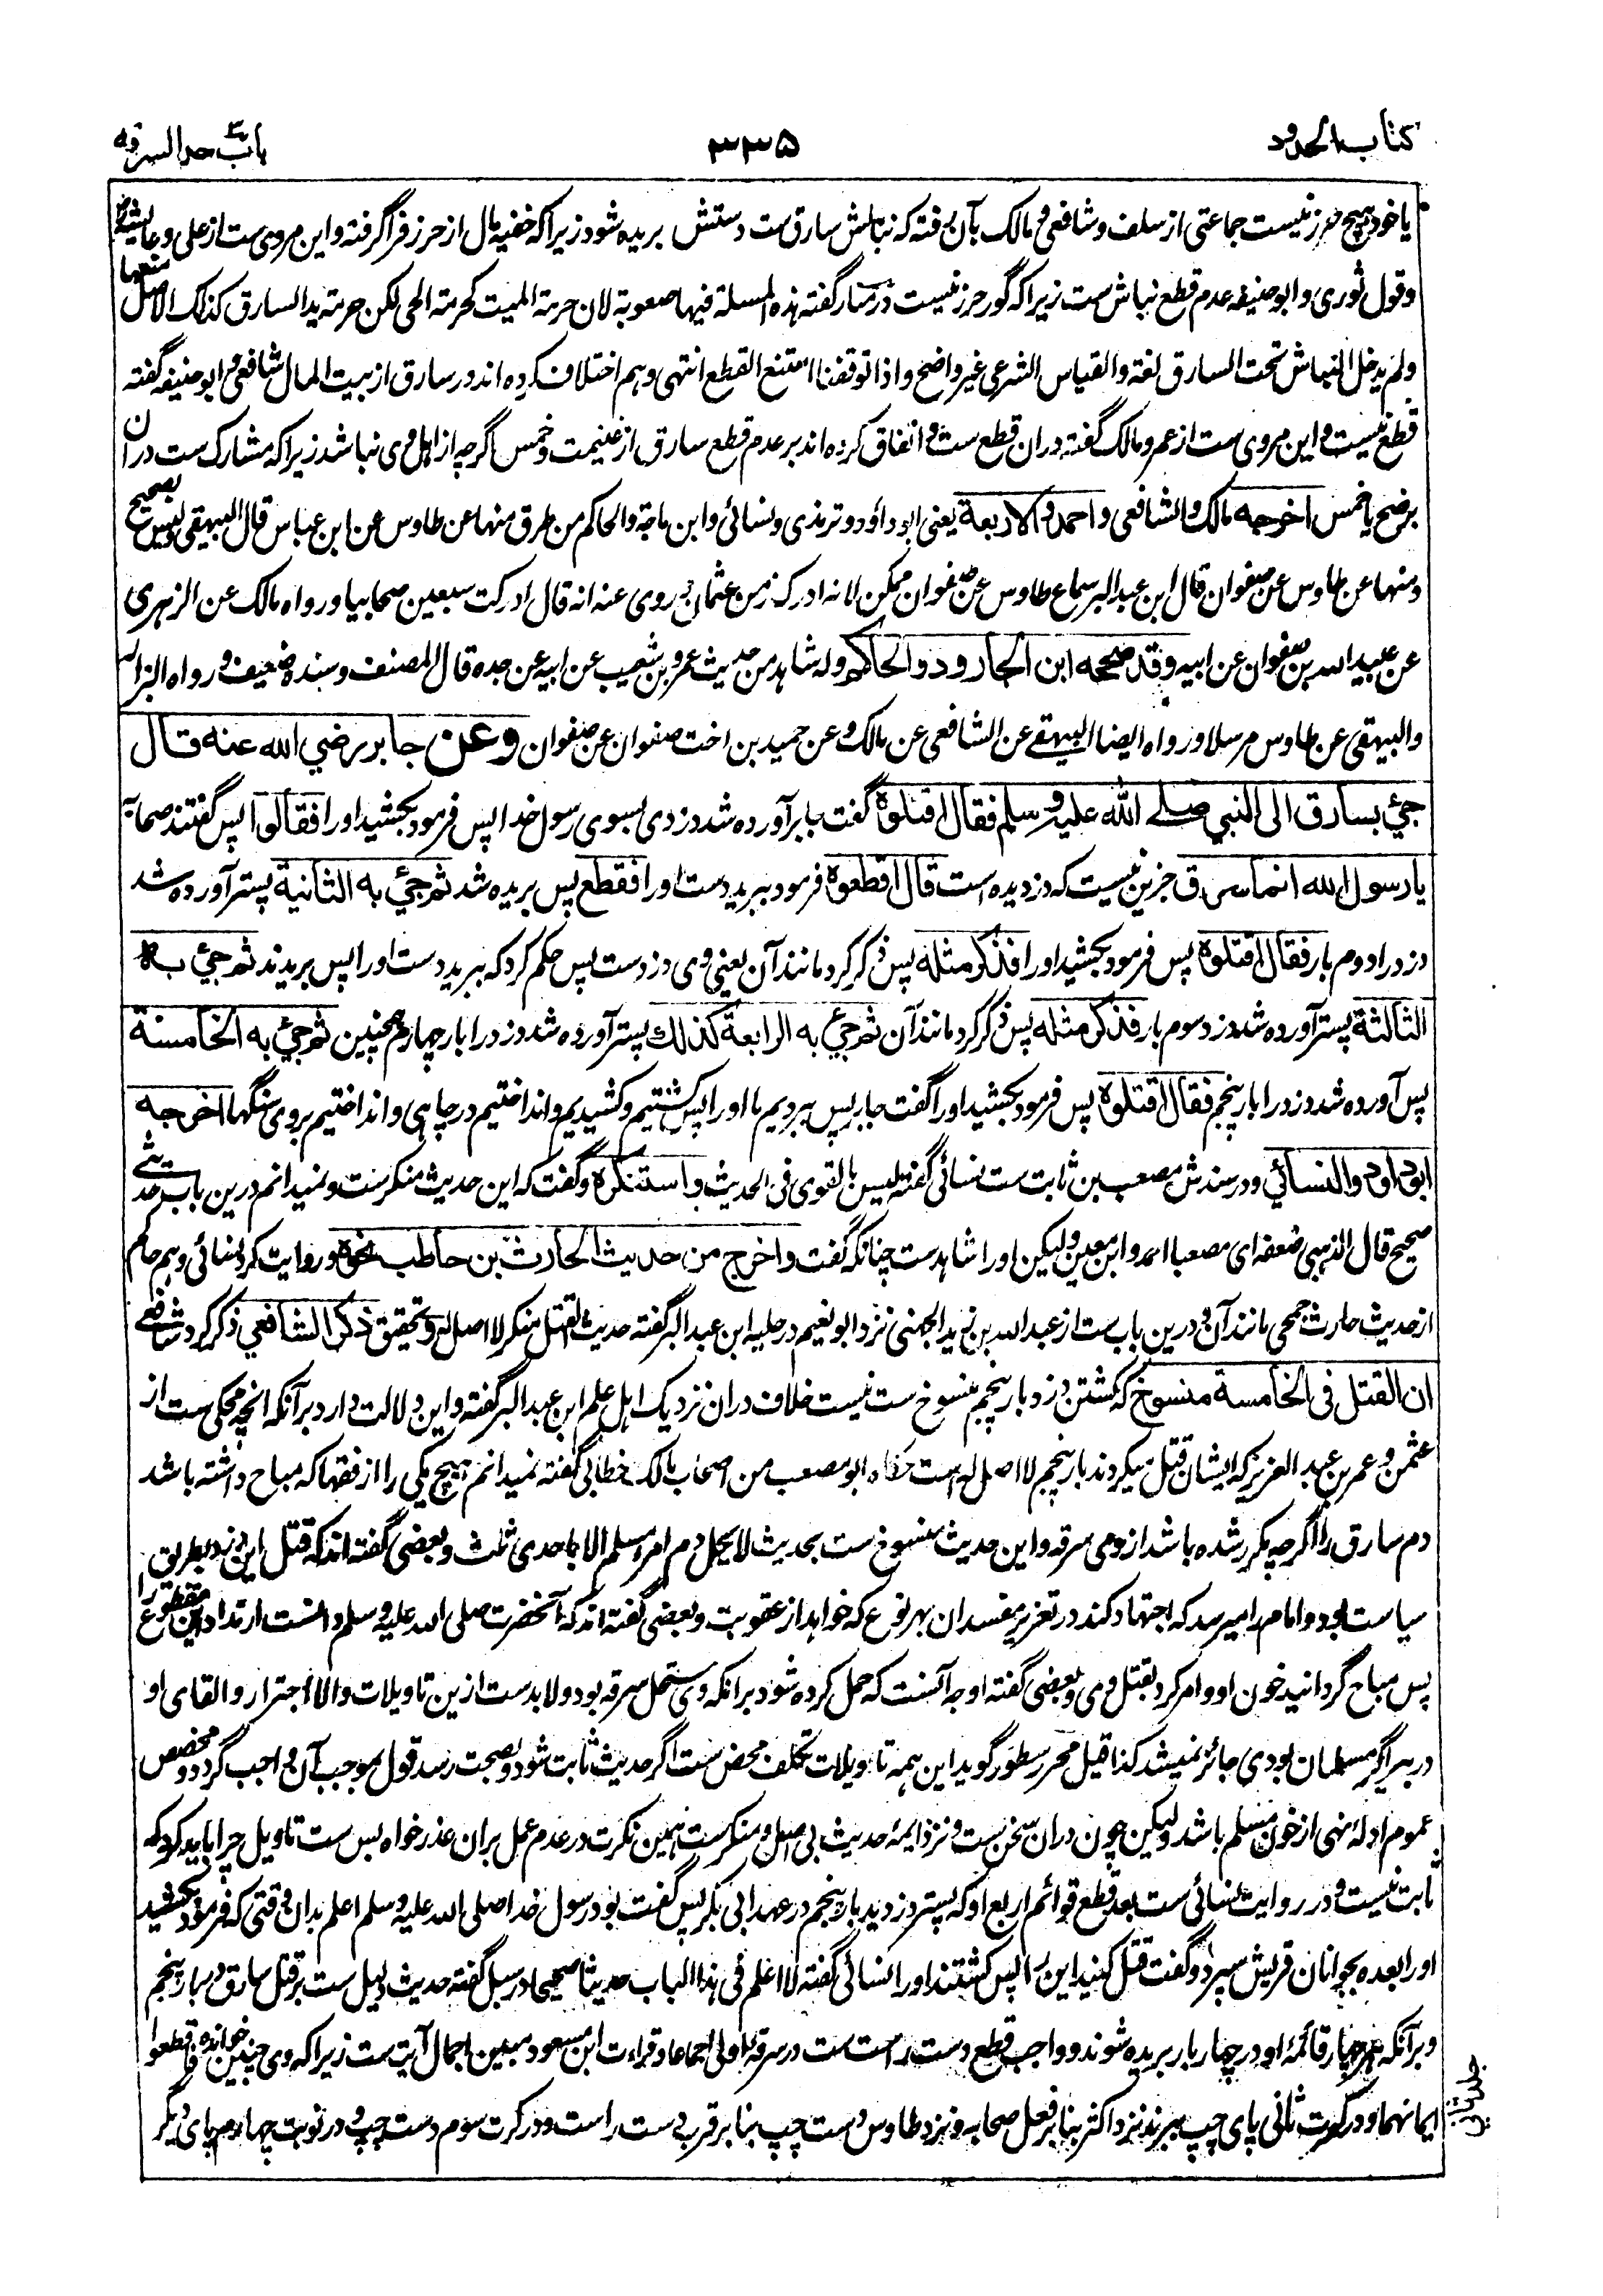 کتاب الحدود
۳۳۵
باب حد السرقه
یا خود هیچ حرز نیست جماعتی از سلف و شافعی و مالک بآن رفته که نباش سارق ست دستش بریده شود زیرا که خفیه مال از حرز فرا گرفته و این مروی ست از علی و عایشه رضی الله عنهما
و قول ثوری و ابو حنیفه عدم قطع نباش ست زیرا که گور حرز نیست در منار گفته هذه المسئلة فیها صعوبة لان حرمة المیت کحرمة الحی لکن حرمة ید السارق کذلک الاصل منعها
ولم یدخل النباش تحت السارق لغة والقیاس الشرعی غیر واضح واذا توقفنا امتنع القطع انتهی و هم اختلاف کرده اند در سارق از بیت المال شافعی و ابو حنیفه گفته
قطع نیست و این مروی ست از عمر و مالک گفته دران قطع ست و اتفاق کرده اند بر عدم قطع سارق از غنیمت و خمس اگرچه از اهل وی نباشد زیرا که مشارک ست دران
برضخ یا خمس اخرجه مالک والشافعی و احمد و الاربعة یعنی ابو داؤد و ترمذی و نسائی و ابن ماجة والحاکم من طرق منها عن طاوس عن ابن عباس قال البیهقی ولیس بصحیح
و منها عن طاوس عن صفوان قال ابن عبد البر سماع طاوس عن صفوان ممکن لانه ادرک زمن عثمان و روی عنه انه قال ادرکت سبعین صحابیا و رواه مالک عن الزهری
عن عبید الله بن صفوان عن ابیه وقد صححه ابن الجارود والحاکم وله شاهد من حدیث عمرو بن شعیب عن ابیه عن جده قال المصنف وسنده ضعیف و رواه البزار
والبیهقی عن طاوس مرسلا و رواه ایضا البیهقی عن الشافعی عن مالک و عن حمید بن اخت صفوان عن صفوان وعن جابر رضي الله عنه قال
جيء بسارق الى النبي صلے الله علیه و سلم فقال اقتلوه گفت جابر آورده شد دزدی بسوی رسول خدا پس فرمود بکشید او را فقالوا پس گفتند صحابه
یا رسول الله انما سرق جز این نیست که دزدیده است قال اقطعوه فرمود ببرید دست او را فقطع پس بریده شد ثم جيء به الثانیة پستر آورده شد
دزد را دوم بار فقال اقتلوه پس فرمود بکشید او را فذکر مثله پس ذکر کرد مانند آن یعنی وی دزدست پس حکم کرد که ببرید دست او را پس بریدند ثم جيء به
الثالثة پستر آورده شد دزد سوم بار فذکر مثله پس ذکر کرد مانند آن ثم جيء به الرابعة کذلک پستر آورده شد دزد را بار چهارم همچنین ثم جيء به الخامسة
پس آورده شد دزد را بار پنجم فقال اقتلوه پس فرمود بکشید او را گفت جابر پس بردیم ما او را پس کشتیم و کشیدیم و انداختیم در چاهی و انداختیم بروی سنگها اخرجه
ابو داود والنسائي و در سندش مصعب بن ثابت ست نسائی گفته لیس بالقوی فی الحدیث واستنکره و گفت که این حدیث منکرست و نمیدانم درین باب حدیثے
صحیح قال الذهبی ضعفه ای مصعبا احمد و ابن معین ولیکن او را شاهدست چنانکه گفت واخرج من حدیث الحارث بن حاطب نحوه و روایت کرد نسائی و هم حاکم
از حدیث حارث جمحی مانند آن و درین باب ست از عبد الله بن زید الجهنی نزد ابو نعیم در حلیه ابن عبد البر گفته حدیث القتل منکر لا اصل له و تحقیق ذکر الشافعي ذکر کرد شافعے
ان القتل فی الخامسة منسوخ که کشتن دزد بار پنجم منسوخ ست نیست خلاف دران نزدیک اهل علم ابن عبد البر گفته و این دلالت دارد برآنکه آنچه محکی ست از
عثمن و عمر بن عبد العزیز که ایشان قتل میکردند بار پنجم لا اصل له است حکاه ابو مصعب من اصحاب مالک خطابی گفته نمیدانم هیچ یکی را از فقها که مباح داشته باشد
دم سارق را اگرچه مکرر شده باشد از وی سرقه و این حدیث منسوخ ست بحدیث لا یحل دم امرء مسلم الا باحدی ثلث و بعضی گفته اند که قتل این دزد بطریق
سیاست بود و امام را میرسد که اجتهاد کند در تعزیر مفسدان بهر نوع که خواهد از عقوبت و بعضی گفته اند که آنحضرت صلی الله علیه و سلم دانست ارتداد این مقطوع را
پس مباح گردانید خون او و امر کرد بقتل وی و بعضی گفته اوجه آنست که حمل کرده شود برانکه وی مستحل سرقه بود و لابدست ازین تاویلات والا اجترار و القای او
در بیر اگر مسلمان بودی جائز نمیشد کذا قیل محرر سطور گوید این همه تاویلات تکلف محض ست اگر حدیث ثابت شود و بصحت رسد قول بموجب آن واجب گردد و مخصص
عموم ادلهٔ نهی از خون مسلم باشد ولیکن چون دران سخن ست و نزد ایمهٔ حدیث بی اصل و منکرست همین نکرت در عدم عمل بران عذر خواه بس ست تاویل چرا باید کرد که
ثابت نیست و در روایت نسائی ست بعد قطع قوائم اربع او که پستر دزدید بار پنجم در عهد ابی بکر پس گفت بود رسول خدا صلی الله علیه و سلم اعلم بدان وقتی که فرمود بکشید
او را بعده بجوانان قریش سپرد و گفت قتل کنید این را پس کشتند او را نسائی گفته لا اعلم فی هذا الباب حدیثا صحیحا در سبل گفته حدیث دلیل ست بر قتل سارق در بار پنجم
و برآنکه هر چهار قائمهٔ او در چهار بار بریده شوند و واجب قطع دست راست ست در سرقهٔ اولی اجماعا و قراءت ابن مسعود مبین اجمال آیت ست زیرا که وی چنین خوانده فاقطعوا
ایمانهما و در کرت ثانی پای چپ ببرند نزد اکثر بنابر فعل صحابه و نزد طاوس دست چپ بنابر قرب دست راست و در کرت سوم دست چپ و در نوبت چهارم پای دیگر